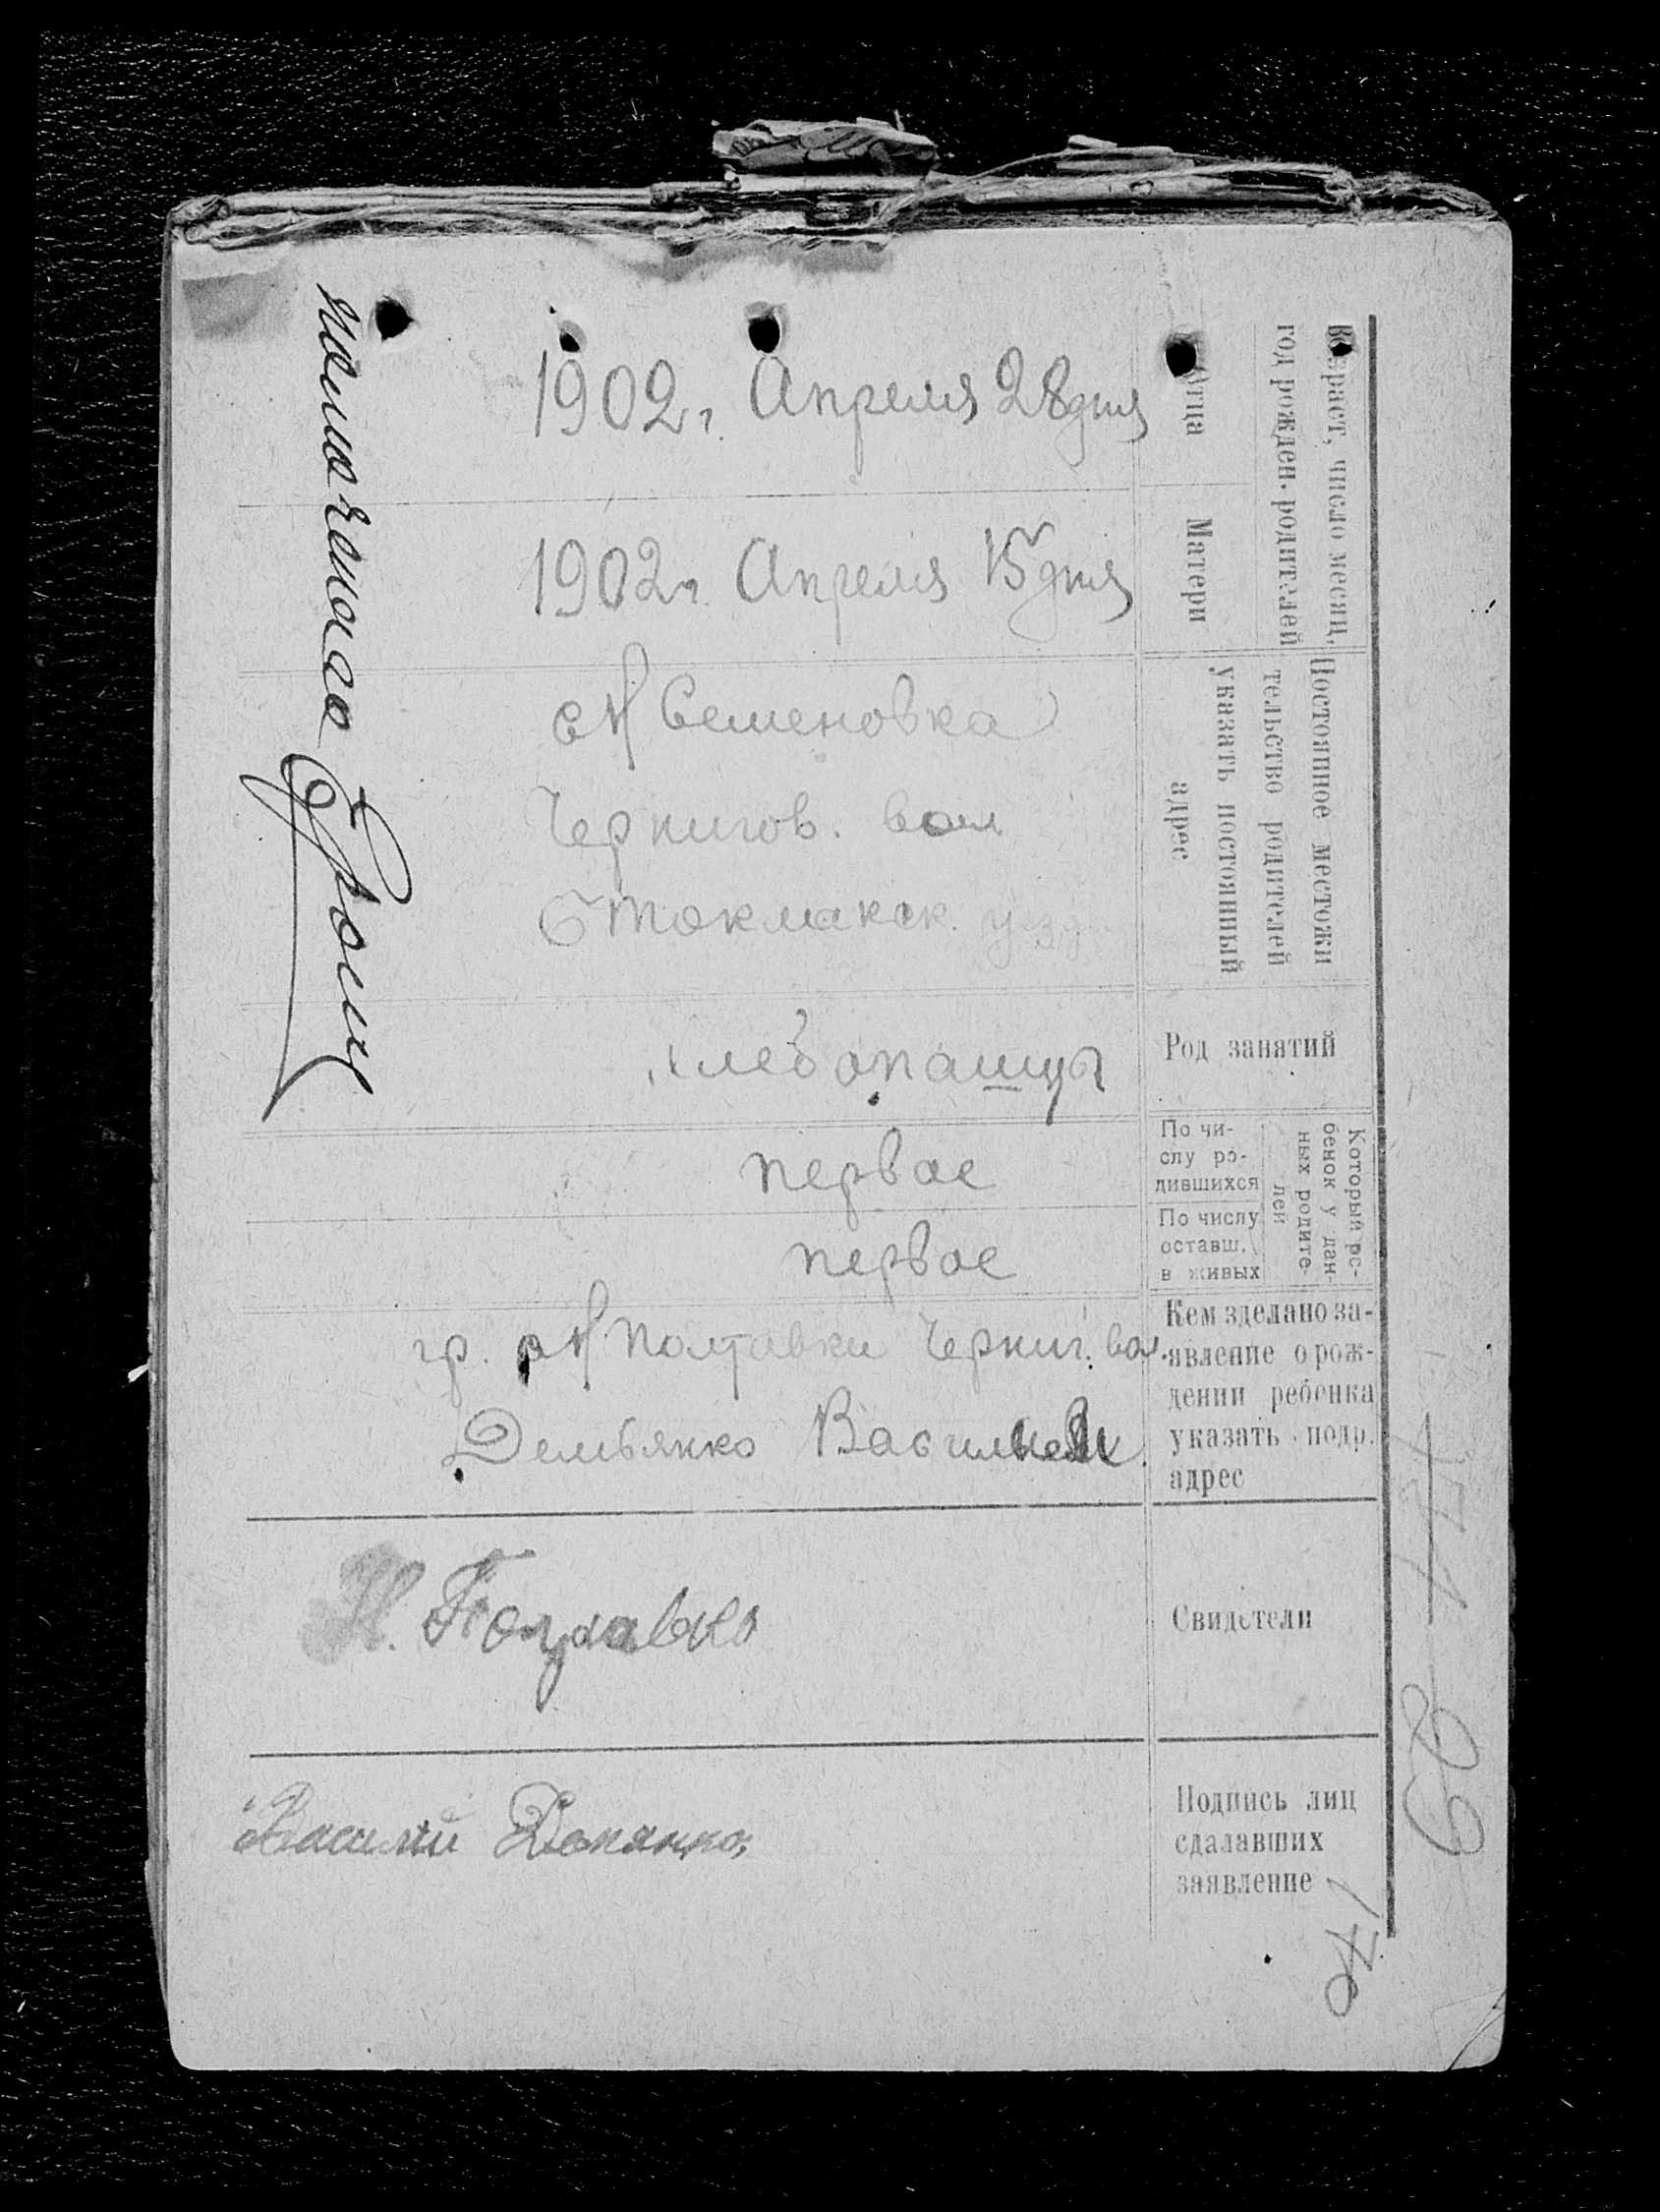 Возраст, число месяц,
год рожден. родителей
Отца
1902 г. Апреля 28 дня
Матери
1902 г. Апреля 15 дня
Постоянное местожи
тельство родителей
указать постоянный
адрес
Семеновка
Чернигов. вол
Б Токмакск. у
Род занятий
хлебопашцы
Который ре-
бенок у дан-
ных родите-
лей
По чи-
слу ро-
дившихся
первое
По числу
оставш.
в живых
первое
Кем зделано за-
явление о рож-
дении ребенка
указать подр.
адрес
гр. Полтавки Черниг. вол.
Демьянко
Свидетели
Н.
Подпись лиц
сдалавших
заявление
Василий
171
29
176